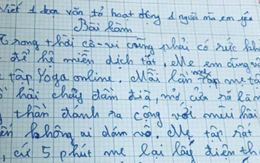 Viết 1 đoạn văn tả hoạt động 1 người mà em yêu
Bài làm
Trong thời cô-vi cũng phải có sức kh
để hệ miễn dịch tốt, Mẹ em cũng v
tập Yoga online. Mỗi lần tập mẹ t
hai chậy đám đuổi, mở cửa sổ làm
thần đánh ra cộng với mùi hôi
không ai dám vô. Mẹ tập rất
cứ 5 phút mẹ lại lấy điện th